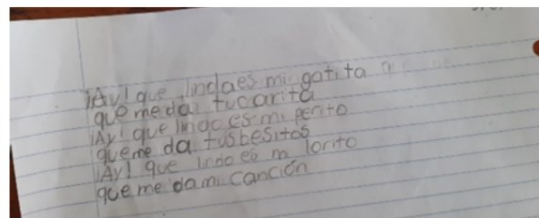 ¡Ay! que lindaes mi gatita
que meda tucarita
¡Ay! que lindo es mi perito
queme da tusbesitos
¡Ay! que lindo es mi lorito
que me da mi canción